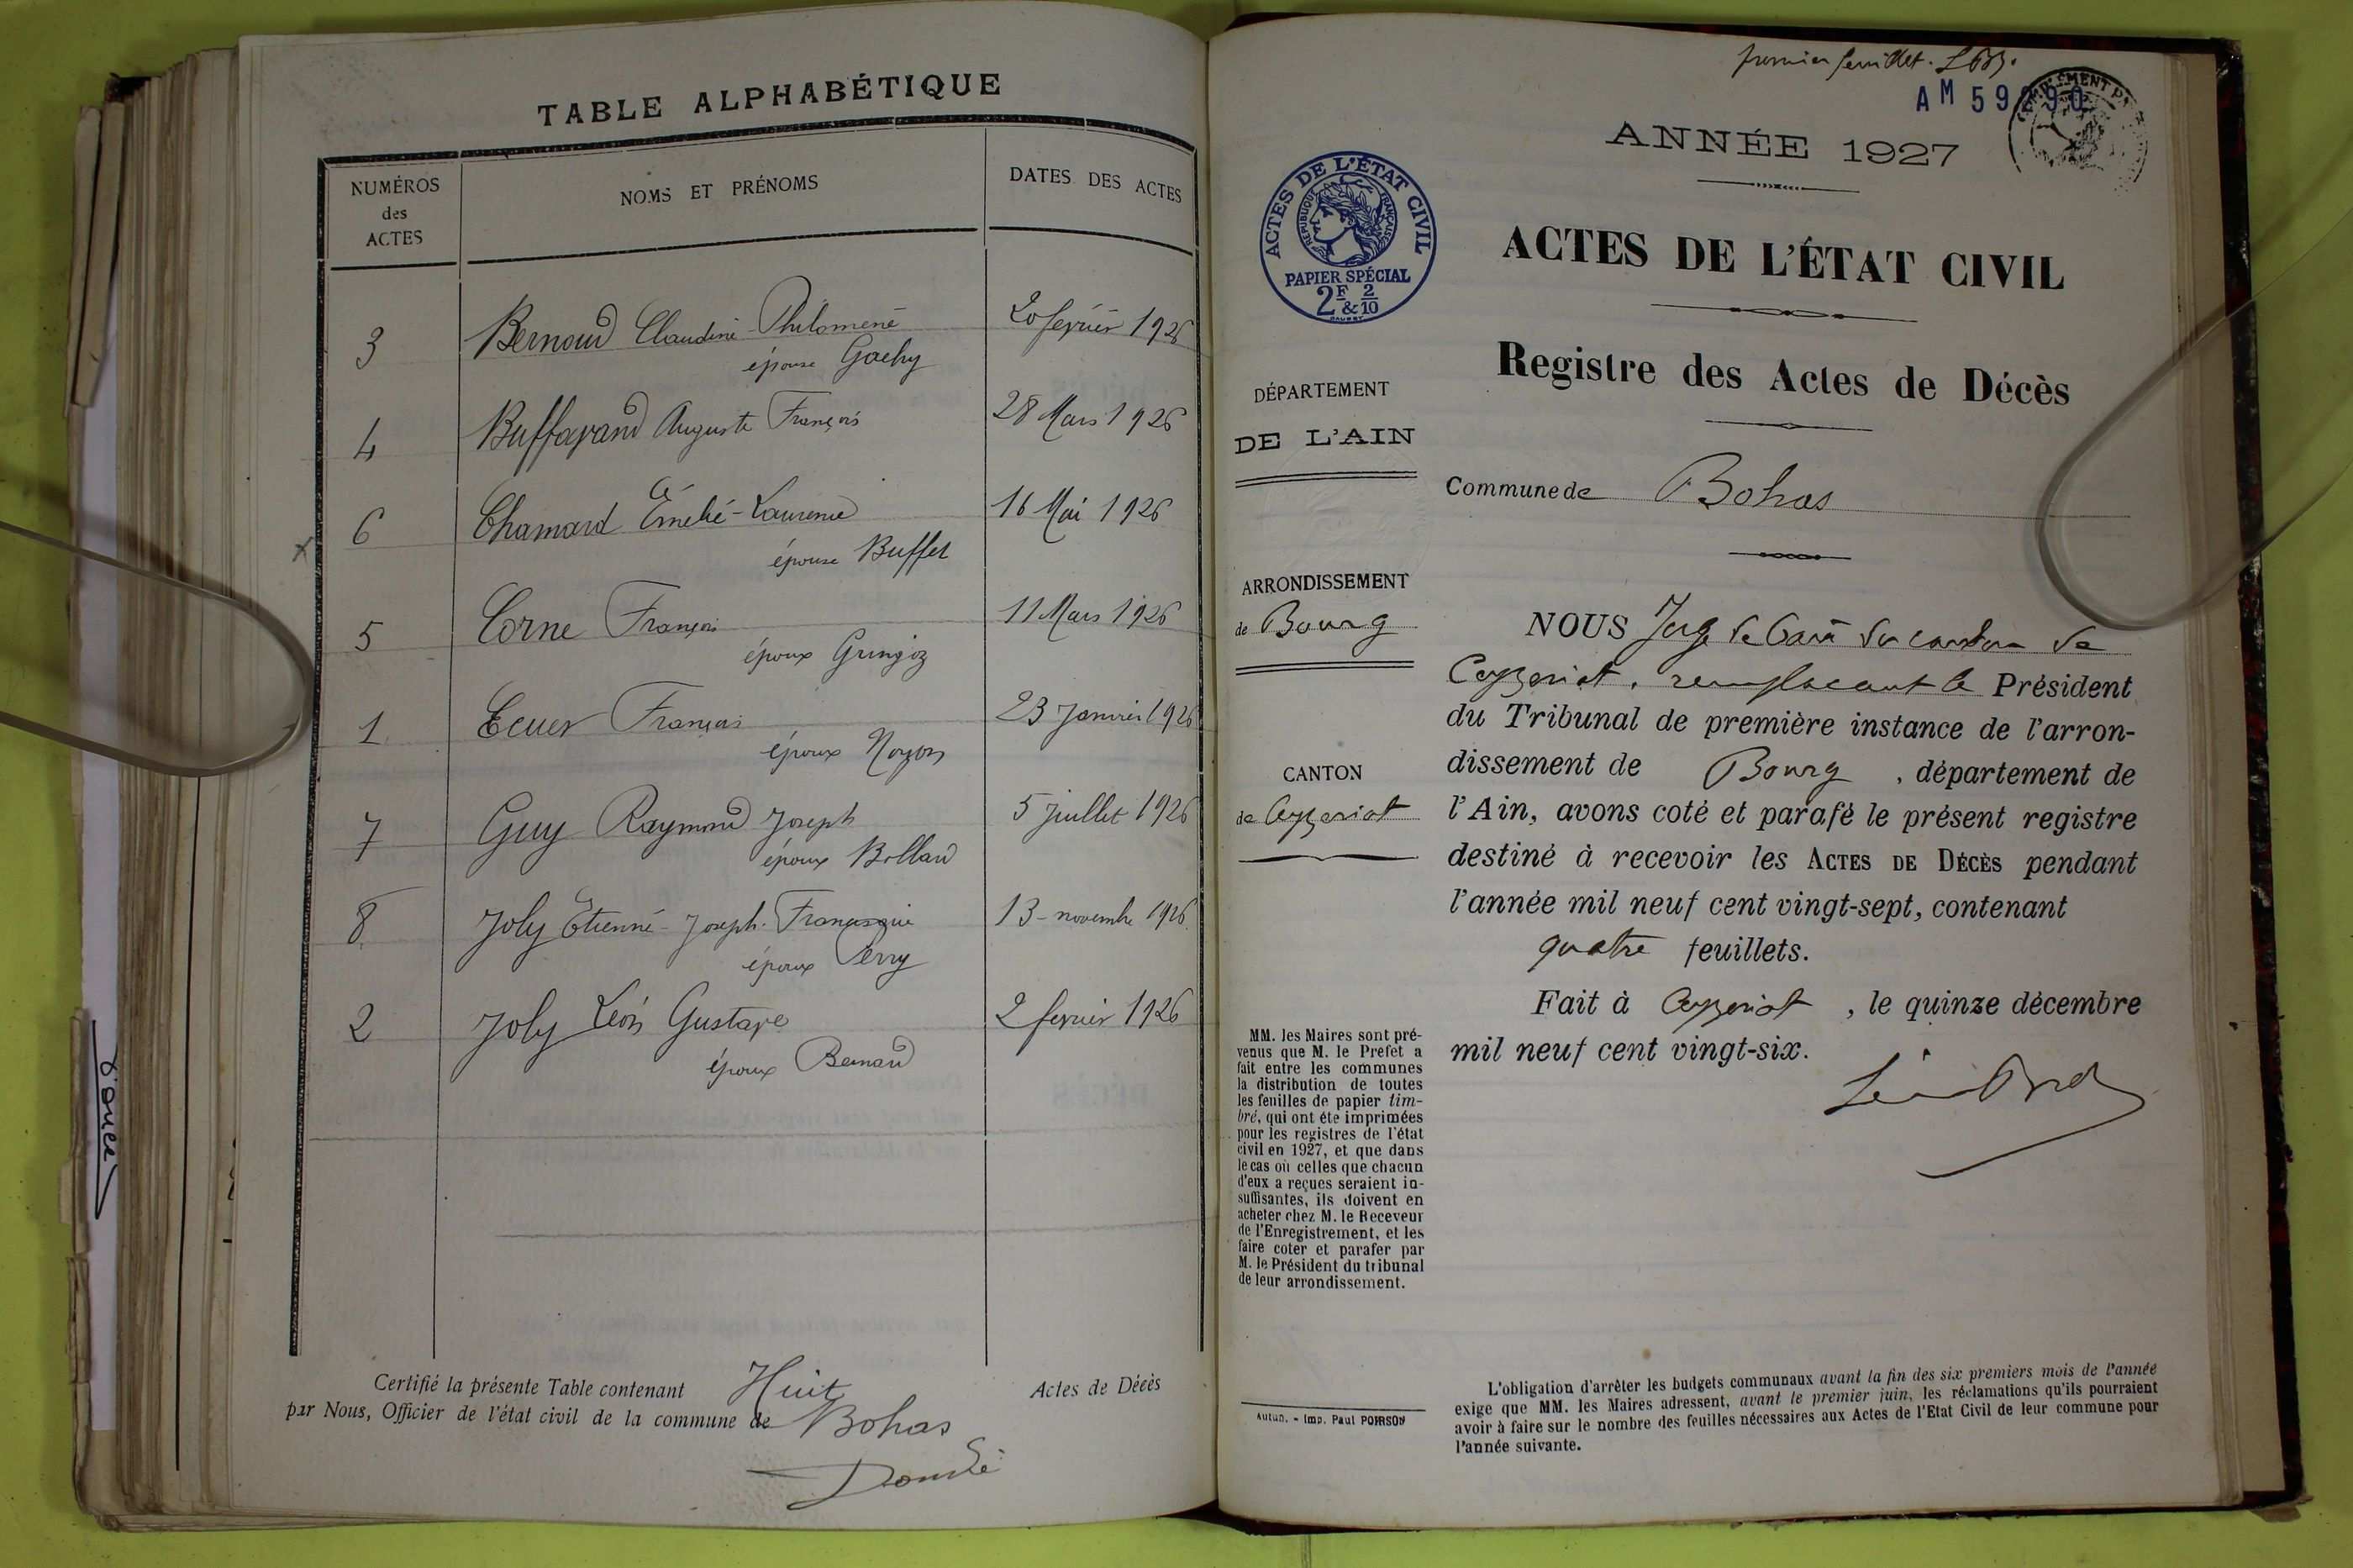 TABLE ALPHABÉTIQUE
NUMÉROS
des
ACTES
NOMS ET PRÉNOMS
DATES DES ACTES
3 Bernoud Claudine-Philomène 20 février 1926
épouse Gachy
4 Buffavand Auguste François 28 Mars 1926
6 Chamard Émelie-Laurence 16 Mai 1926
épouse Buffet
5 Corne François 11 Mars 1926
époux Gringoz
1 Ecuer François 23 Janvier 1926
époux Noyon
7 Guy Raymond Joseph 5 juillet 1926
époux Bolland
8 Joly Etienne-Joseph-Francisque 13-novembre 1926
époux Perry
2 Joly Léon Gustave 2 fevrier 1926
époux Bernard
Certifié la présente Table contenant Huit Actes de Décès
par Nous, Officier de l'état civil de la commune de Bohas
premier feuillet.
AM 59290
ANNÉE 1927
ACTES DE L'ÉTAT CIVIL
RÉPUBLIQUE FRANÇAISE
PAPIER SPÉCIAL
2F & 2/10
ACTES DE L'ÉTAT CIVIL
Registre des Actes de Décès
DÉPARTEMENT
DE L'AIN
Commune de Bohas
ARRONDISSEMENT
de Bourg
CANTON
de Ceyzeriat
NOUS Juge de Paix du canton de
Ceyzeriat, remplacant le Président
du Tribunal de première instance de l'arron-
dissement de Bourg, département de
l'Ain, avons coté et parafé le présent registre
destiné à recevoir les ACTES DE DÉCÈS pendant
l'année mil neuf cent vingt-sept, contenant
quatre feuillets.
Fait à Ceyzeriat, le quinze décembre
mil neuf cent vingt-six.
MM. les Maires sont pré-
venus que M. le Prefet a
fait entre les communes
la distribution de toutes
les feuilles de papier tim-
bré, qui ont éte imprimées
pour les registres de l'état
civil en 1927, et que dans
le cas où celles que chacun
d'eux a reçues seraient in-
suffisantes, ils doivent en
acheter chez M. le Receveur
de l'Enregistrement, et les
faire coter et parafer par
M. le Président du tribunal
de leur arrondissement.
Autun. - Imp. Paul POIRSON
L'obligation d'arrêter les budgets communaux avant la fin des six premiers mois de l'année
exige que MM. les Maires adressent, avant le premier juin, les réclamations qu'ils pourraient
avoir à faire sur le nombre des feuilles nécessaires aux Actes de l'Etat Civil de leur commune pour
l'année suivante.